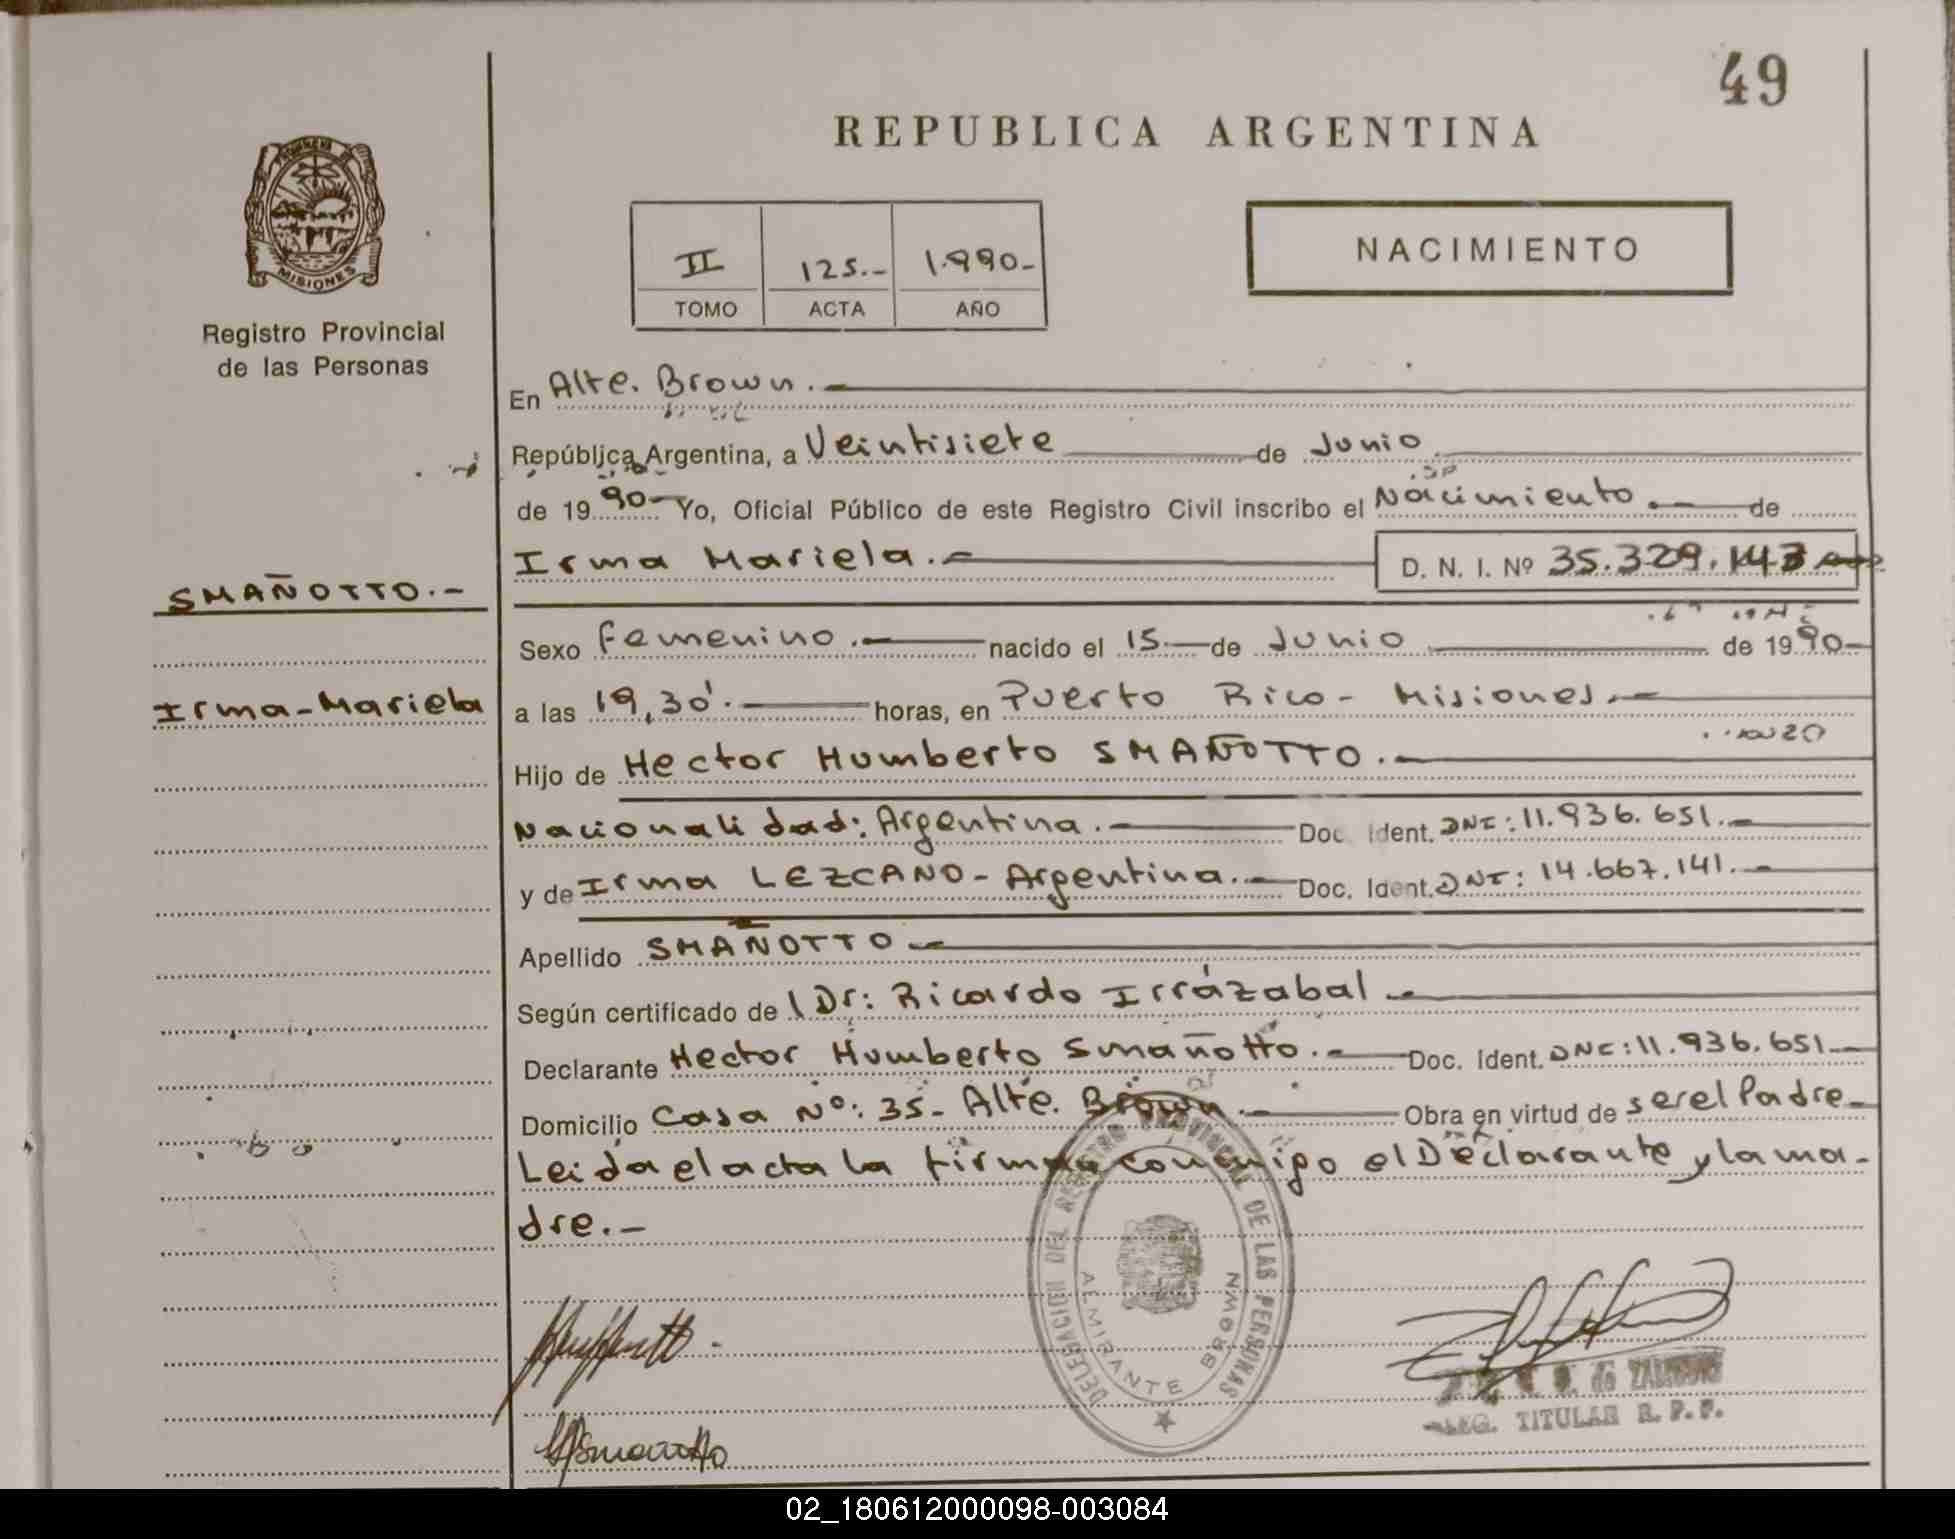 49
REPUBLICA ARGENTINA
PROVINCIA DE
MISIONES
Registro Provincial
de las Personas
II 125.- 1.990-
TOMO ACTA AÑO
NACIMIENTO
En Alte. Brown.-
República Argentina, a Veintisiete de Junio
de 1990- Yo, Oficial Público de este Registro Civil inscribo el Nacimiento.- de
Irma Mariela.- D. N. I. Nº 35.329.143
SMAÑOTTO.-
Sexo Femenino.- nacido el 15 de Junio de 1990-
Irma-Mariela
a las 19,30'. horas, en Puerto Rico- Misiones.-
Hijo de Hector Humberto SMAÑOTTO.-
Nacionalidad: Argentina.- Doc. Ident. DNI: 11.936.651.-
y de Irma LEZCANO- Argentina.- Doc. Ident. DNI: 14.667.141.-
Apellido SMAÑOTTO-
Según certificado de l Dr: Ricardo Irrázabal.-
Declarante Hector Humberto Smañotto.- Doc. Ident. DNI: 11.936.651-
Domicilio Casa Nº: 35- Alte. Brown.- Obra en virtud de ser el Padre-
Leida el acta la firman conmigo el Declarante y la ma-
dre.-
DELEGACION DEL REGISTRO PROVINCIAL DE LAS PERSONAS
ALMIRANTE BROWN
de
TITULAR R. P. P.
02_180612000098-003084